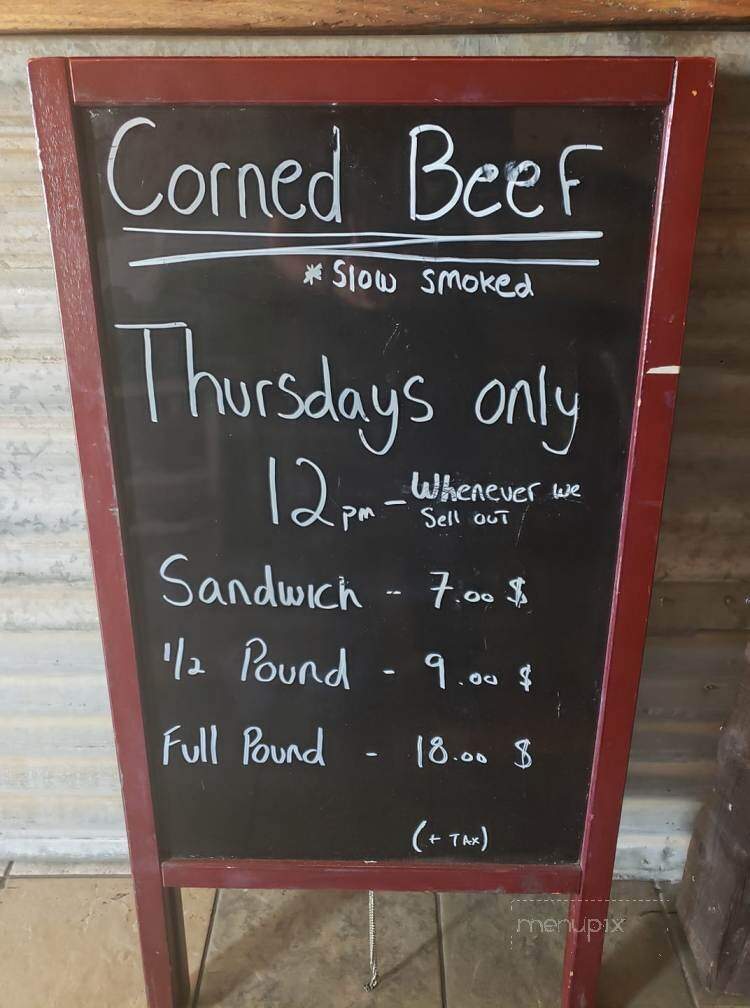 Corned Beef
* Slow smoked
Thursdays only
12pm - Whenever we
Sell out
Sandwich - 7.00 $
1/2 Pound - 9.00 $
Full Pound - 18.00 $
(+ TAX)
menupix